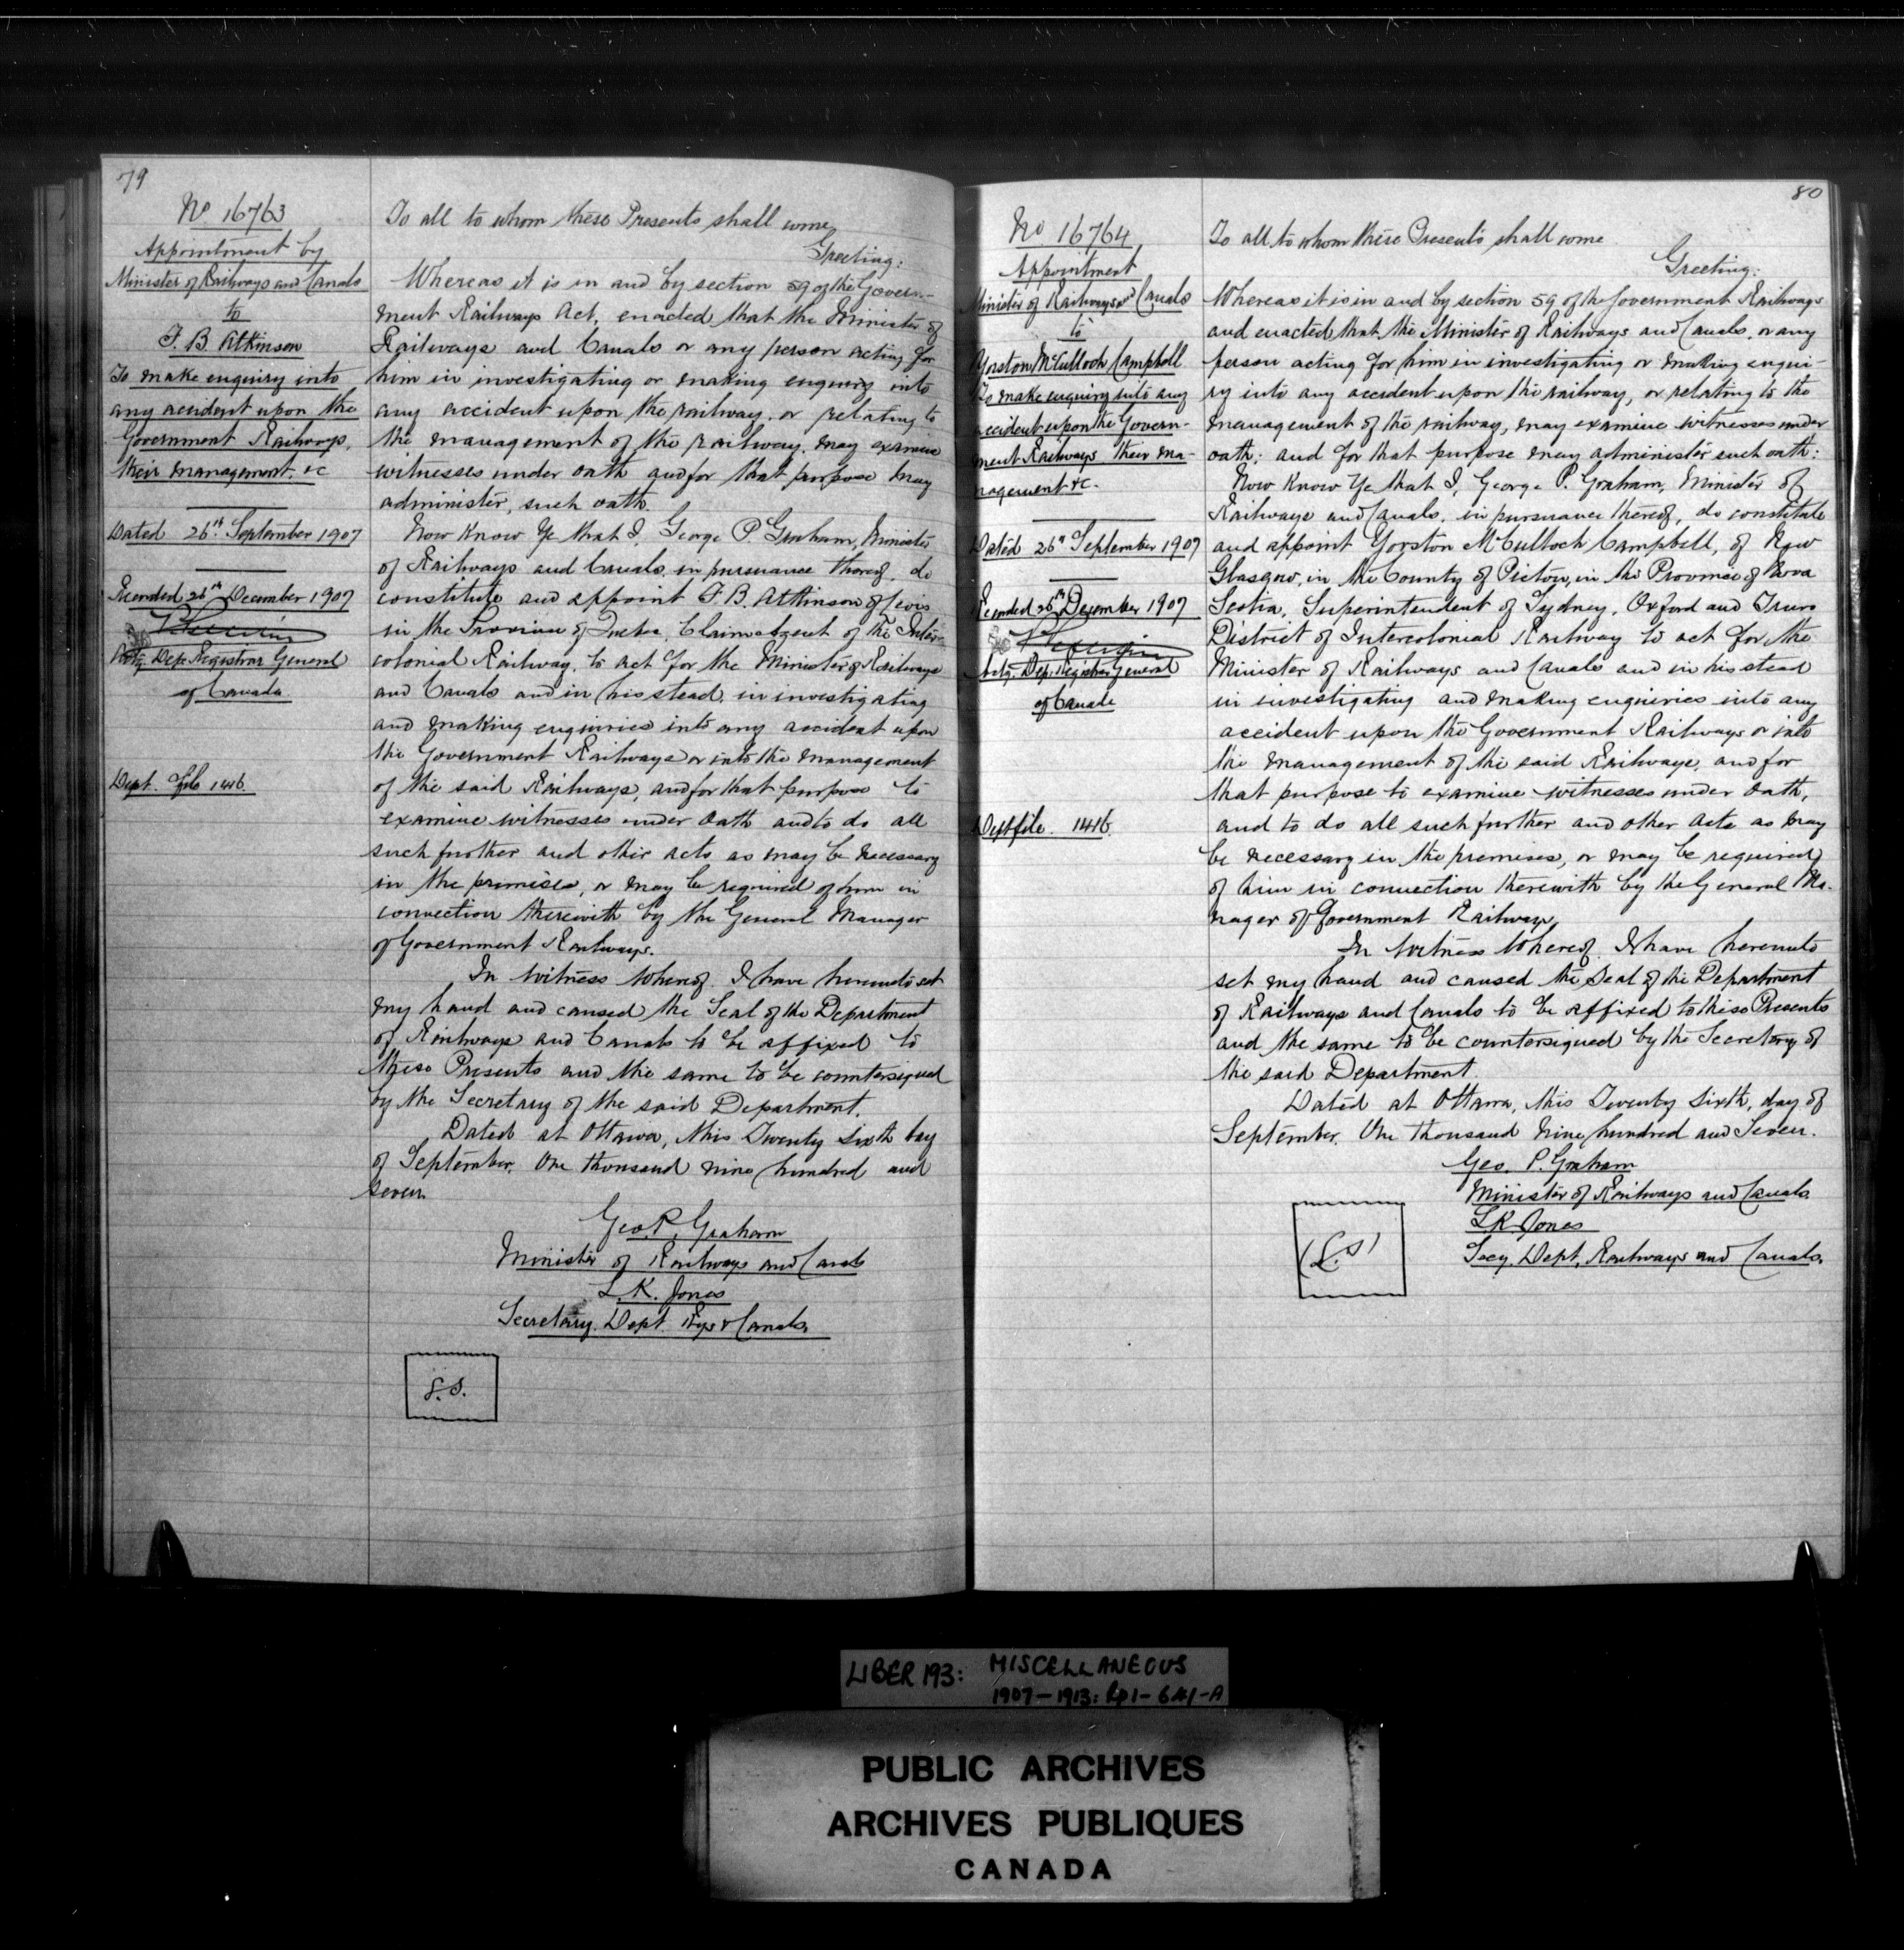 79
No 16763
Appointment by
Minister of Railways and Canals
to
F. B. Atkinson
To make enquiry into
any accident upon the
Government Railways,
their management &c
Dated 26th September 1907
Recorded 26th December 1907
Actg. Dep. Registrar General
of Canada
Dept. File 1416.
To all to whom these Presents shall come,
Greeting:
Whereas it is in and by section 59 of the Govern-
ment Railways Act, enacted that the Minister of
Railways and Canals or any person acting for
him in investigating or making enquiry into
any accident upon the railway, or relating to
the management of the railway, may examine
witnesses under oath and for that purpose may
administer, such oath.
Now Know Ye that I, George P. Graham, Minister
of Railways and Canals, in pursuance thereof, do
constitute and appoint F. B. Atkinson of Levis
in the Province of Quebec, Claims Agent of the Inter-
colonial Railway, to act for the Minister of Railways
and Canals and in his stead, in investigating
and making enquiries into any accident upon
the Government Railways or into the management
of the said Railways, and for that purpose to
examine witnesses under oath and to do all
such further and other acts as may be necessary
in the premises, or may be required of him in
connection therewith by the General Manager
of Government Railways.
In Witness Whereof, I have hereunto set
my hand and caused the Seal of the Department
of Railways and Canals to be affixed to
these Presents and the same to be countersigned
by the Secretary of the said Department.
Dated at Ottawa, this Twenty Sixth day
of September, One thousand nine hundred and
seven.
Geo. P. Graham
Minister of Railways and Canals
L. K. Jones
Secretary. Dept. Rys & Canals.
L.S.
80
No 16764
Appointment
Minister of Railways and Canals
to
Yorston McCulloch Campbell
To make enquiry into any
accident upon the Govern-
ment Railways their ma-
nagement &c.
Dated 26th September 1907
Recorded 26th December 1907
Actg. Dep. Registrar General
of Canada
Dept file. 1416.
To all to whom these Presents shall come
Greeting:
Whereas it is in and by section 59 of the Government Railways
and enacted that the Minister of Railways and Canals, or any
person acting for him in investigating or making enqui-
ry into any accident upon the railway, or relating to the
management of the railway, may examine witnesses under
oath; and for that purpose may administer such oath:
Now Know Ye that I, George P. Graham, Minister of
Railways and Canals, in pursuance thereof, do constitute
and appoint Yorston McCulloch Campbell, of New
Glasgow, in the County of Pictou, in the Province of Nova
Scotia, Superintendent of Sydney, Oxford and Truro
District of Intercolonial Railway to act for the
Minister of Railways and Canals and in his stead
in investigating and making enquiries into any
accident upon the Government Railways or into
the management of the said Railways, and for
that purpose to examine witnesses under oath,
and to do all such further and other acts as may
be necessary in the premises, or may be required
of him in connection therewith by the General Ma-
nager of Government Railways.
In Witness Whereof, I have hereunto
set my hand and caused the Seal of the Department
of Railways and Canals to be affixed to these Presents
and the same to be countersigned by the Secretary of
the said Department.
Dated at Ottawa, this Twenty Sixth, day of
September, One thousand Nine hundred and Seven.
Geo. P. Graham
Minister of Railways and Canals
L K Jones
Secy. Dept, Railways and Canals.
(L.S)
LIBER 193: MISCELLANEOUS
1907-1913: pp1-641-A
PUBLIC ARCHIVES
ARCHIVES PUBLIQUES
CANADA